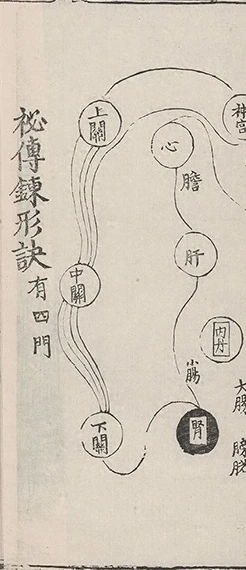 神宮
心
膽
肝
內丹
小腸
腎
大腸
膀胱
上關
中關
下關
祕傳鍊形訣
有四門